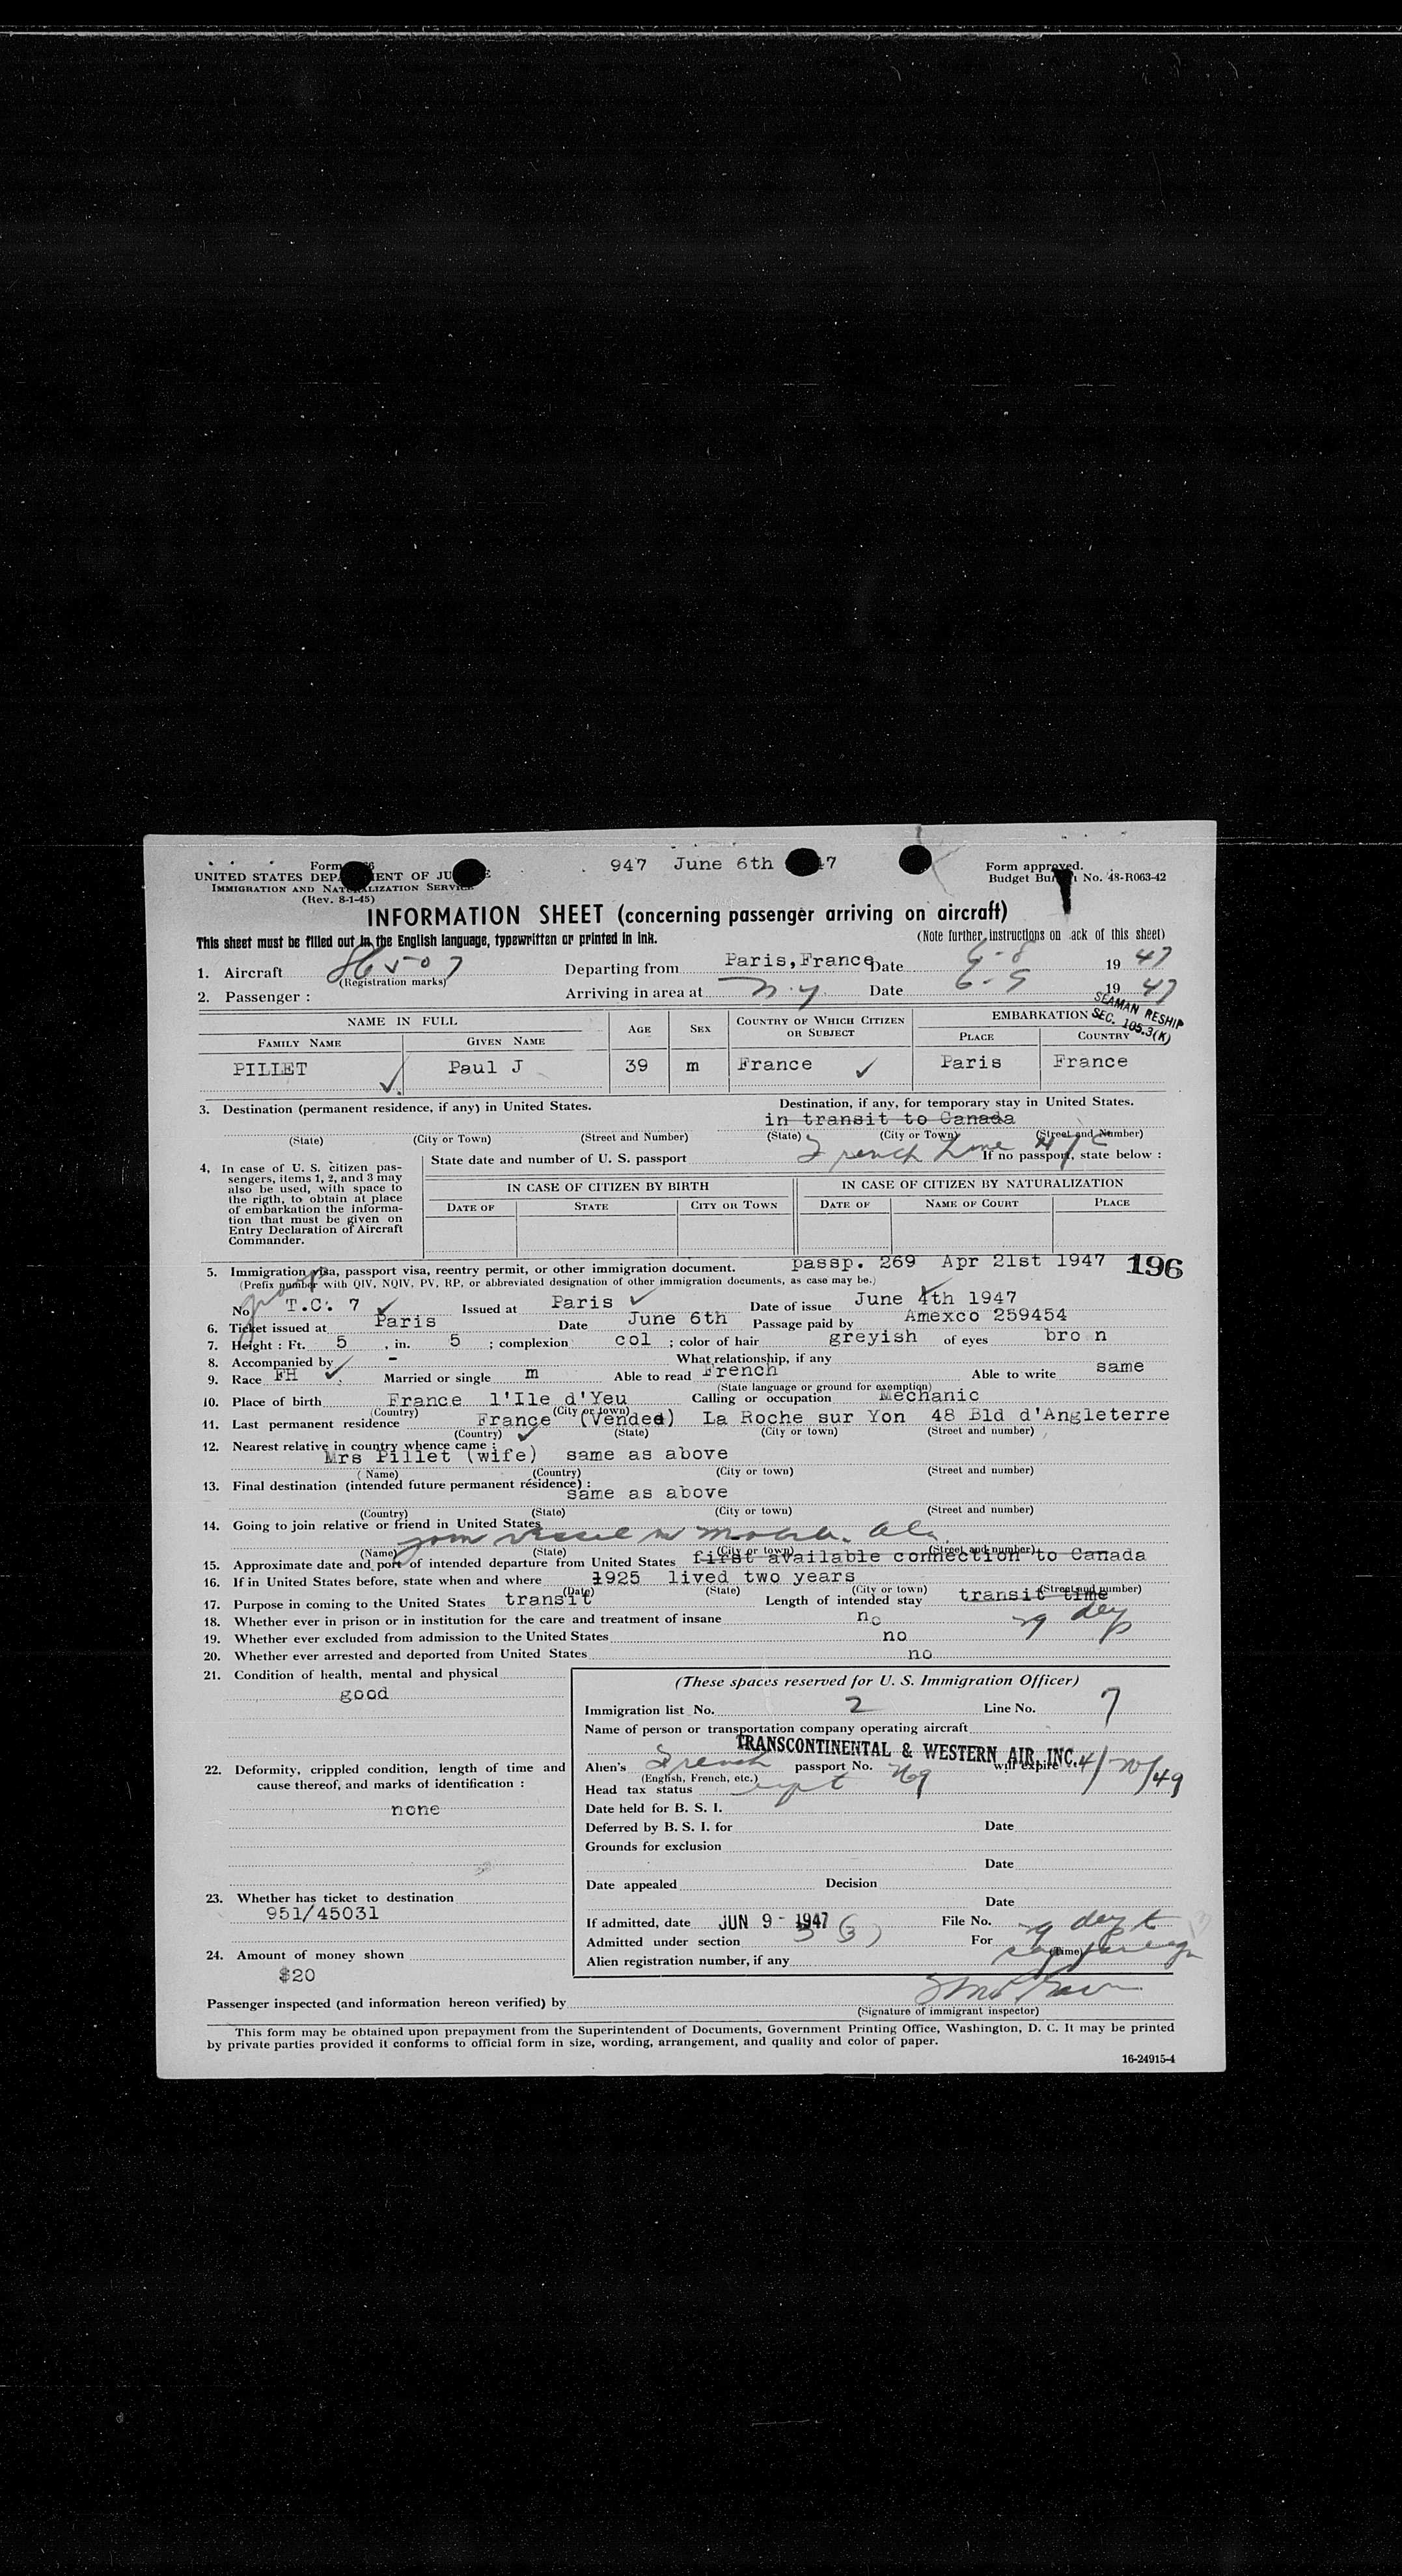 Form
947 June 6th 47
Form approved.
UNITED STATES DEP MENT OF JU E
Budget Bu u No. 48-R063-42
IMMIGRATION AND NAT ALIZATION SERVICE
(Rev. 8-1-45)
INFORMATION SHEET (concerning passenger arriving on aircraft)
This sheet must be filled out in the English language, typewritten or printed in ink.
(Note further instructions on ack of this sheet)
1. Aircraft 86507 Departing from Paris, France Date 6-8 19 47
(Registration marks)
2. Passenger : Arriving in area at N.Y Date 6-9 19 47
SEAMAN RESHIP
SEC. 105.3(K)
NAME IN FULL AGE SEX COUNTRY OF WHICH CITIZEN OR SUBJECT EMBARKATION
FAMILY NAME GIVEN NAME PLACE COUNTRY
PILLET Paul J 39 m France Paris France
3. Destination (permanent residence, if any) in United States. Destination, if any, for temporary stay in United States.
in transit to Canada
(State) (City or Town) (Street and Number) (State) (City or Town) (Street and Number)
French Line NYC
4. In case of U. S. citizen passengers, items 1, 2, and 3 may also be used, with space to the rigth, to obtain at place of embarkation the information that must be given on Entry Declaration of Aircraft Commander.
State date and number of U. S. passport If no passport, state below :
IN CASE OF CITIZEN BY BIRTH IN CASE OF CITIZEN BY NATURALIZATION
DATE OF STATE CITY OR TOWN DATE OF NAME OF COURT PLACE
5. Immigration visa, passport visa, reentry permit, or other immigration document. passp. 269 Apr 21st 1947 196
(Prefix number with QIV, NQIV, PV, RP, or abbreviated designation of other immigration documents, as case may be.)
No T.C. 7 Issued at Paris Date of issue June 4th 1947
6. Ticket issued at Paris Date June 6th Passage paid by Amexco 259454
7. Height : Ft. 5 , in. 5 ; complexion col ; color of hair greyish of eyes bro n
8. Accompanied by - What relationship, if any
9. Race FH Married or single m Able to read French Able to write same
(State language or ground for exemption)
10. Place of birth France l'Ile d'Yeu Calling or occupation Mechanic
(Country) (City or town)
11. Last permanent residence France (Vendee) La Roche sur Yon 48 Bld d'Angleterre
(Country) (State) (City or town) (Street and number)
12. Nearest relative in country whence came :
Mrs Pillet (wife) same as above
(Name) (Country) (City or town) (Street and number)
13. Final destination (intended future permanent résidence) :
same as above
(Country) (State) (City or town) (Street and number)
14. Going to join relative or friend in United States
join vessel in Mobile. Ala
(Name) (State) (City or town) (Street and number)
15. Approximate date and port of intended departure from United States first available connection to Canada
16. If in United States before, state when and where 1925 lived two years
(Date) (State) (City or town) (Street and number)
17. Purpose in coming to the United States transit Length of intended stay transit time
29 days
18. Whether ever in prison or in institution for the care and treatment of insane no
19. Whether ever excluded from admission to the United States no
20. Whether ever arrested and deported from United States no
21. Condition of health, mental and physical
good
22. Deformity, crippled condition, length of time and cause thereof, and marks of identification :
none
23. Whether has ticket to destination
951/45031
24. Amount of money shown
$20
(These spaces reserved for U. S. Immigration Officer)
Immigration list No. 2 Line No. 7
Name of person or transportation company operating aircraft
TRANSCONTINENTAL & WESTERN AIR, INC.
Alien's French passport No. 269 will expire 4/20/49
(English, French, etc.)
Head tax status
Date held for B. S. I.
Deferred by B. S. I. for Date
Grounds for exclusion
Date
Date appealed Decision
Date
If admitted, date JUN 9 - 1947 File No.
Admitted under section 3(3) For 29 days
(Time)
Alien registration number, if any
Passenger inspected (and information hereon verified) by
(Signature of immigrant inspector)
This form may be obtained upon prepayment from the Superintendent of Documents, Government Printing Office, Washington, D. C. It may be printed
by private parties provided it conforms to official form in size, wording, arrangement, and quality and color of paper.
16-24915-4